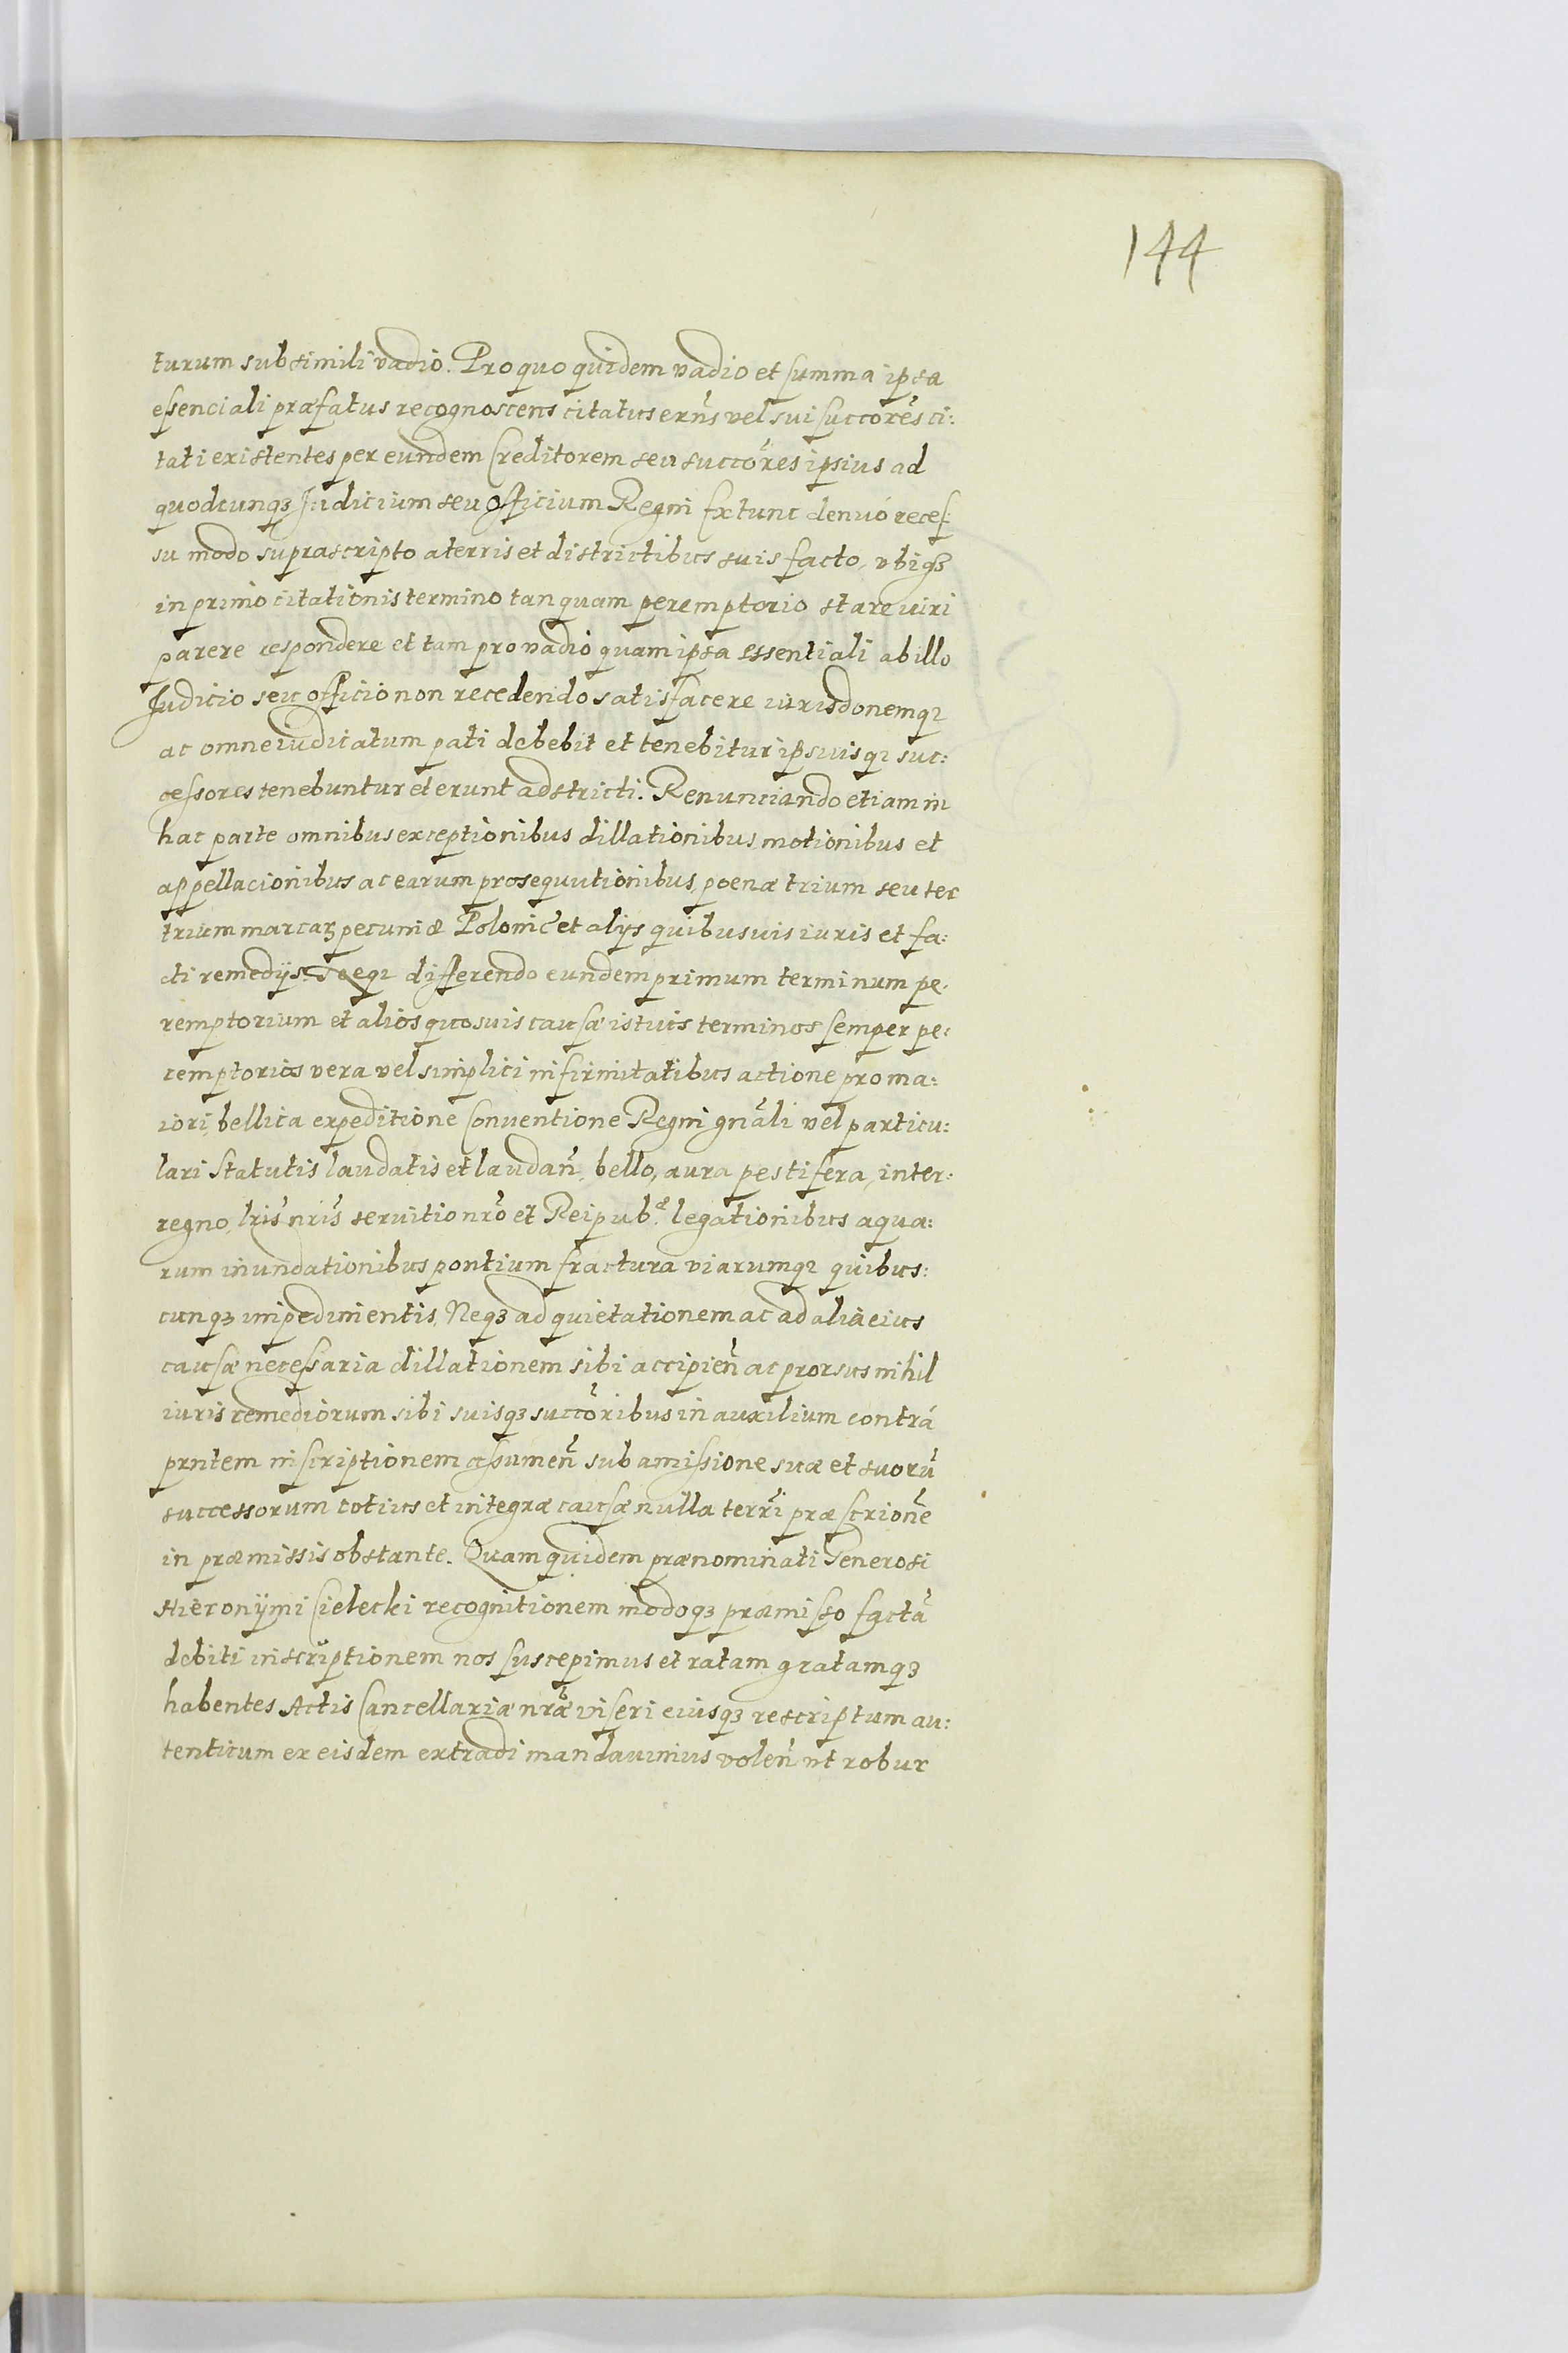 144
turum sub simili vadio. Pro quo quidem vadio et summa ipsa
essenciali præfatus recognoscens citatus exñs vel sui succores̃ ci:
tati existentes per eundem Creditorem seu succor̃es ipsius ad
quodcunqȝ Judicium seu Officium Regni Extunc denuó reces
su modo suprascripto a terris et districtibus suis facto, vbiqȝ
in primo citationis termino tanquam peremptorio stare uiri
parere respondere et tam pro vadio quam ipsa essentiali ab illo
Judicio seu officio non recedendo satisfacere iurisdonemqꝫ
ac omne iudicatum pati debebit et tenebitur ipsuisqꝫ suc:
cessores tenebuntur et erunt adstricti. Renunciando etiam in
hac parte omnibus exceptionibus dillationibus, motionibus et
appellacionibus ac earum prosequutionibus, poenæ trium seu ter
trium marcaꝝ pecuniæ Polonic̃ et alijs quibusuis iuris et fa:
cti remedijs. Seqꝫ differendo eundem primum terminum pe:
remptorium et alios quosuis causæ istuis terminos semper pe:
remptorios vera vel simplici infirmitatibus actione pro ma:
iori, bellica expeditione Conuentione Regni gñali vel particu:
lari Statutis laudatis et laudañ, bello, aura pestifera, inter:
regno, lris̃ nris̃ seruitio nrõ et Reipub.æ legationibus aqua:
rum inundationibus pontium fractura viarumqꝫ quibus:
cunqȝ impedimentis, Neqȝ ad quietationem ac ad alia eius
causæ necessaria dillationem sibi accipieñ ac prorsus nihil
iuris remediorum sibi suisqȝ succor̃ibus in auxilium contrá
prntem inscriptionem assumeñ sub amissione suæ et suorũ
successorum totius et integræ causæ nulla terrĩ præscrioñe
in præmissis obstante. Quam quidem prænominati Generosi
Hieronÿmi Cielecki recognitionem modoqȝ præmisso factã
debiti inscriptionem nos suscepimus et ratam gratamqȝ
habentes Actis Cancellariæ nrã̃e inseri eiusqȝ rescriptum au:
tenticum ex eisdem extradi mandauimus voleñ vt robur